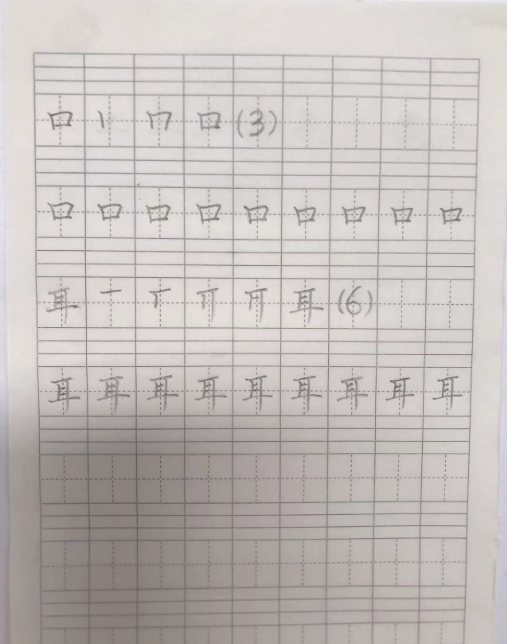 口 丨 冂 口 (3)
口 口 口 口 口 口 口 口 口
耳 一 丅 丌 耳 (6)
耳 耳 耳 耳 耳 耳 耳 耳 耳